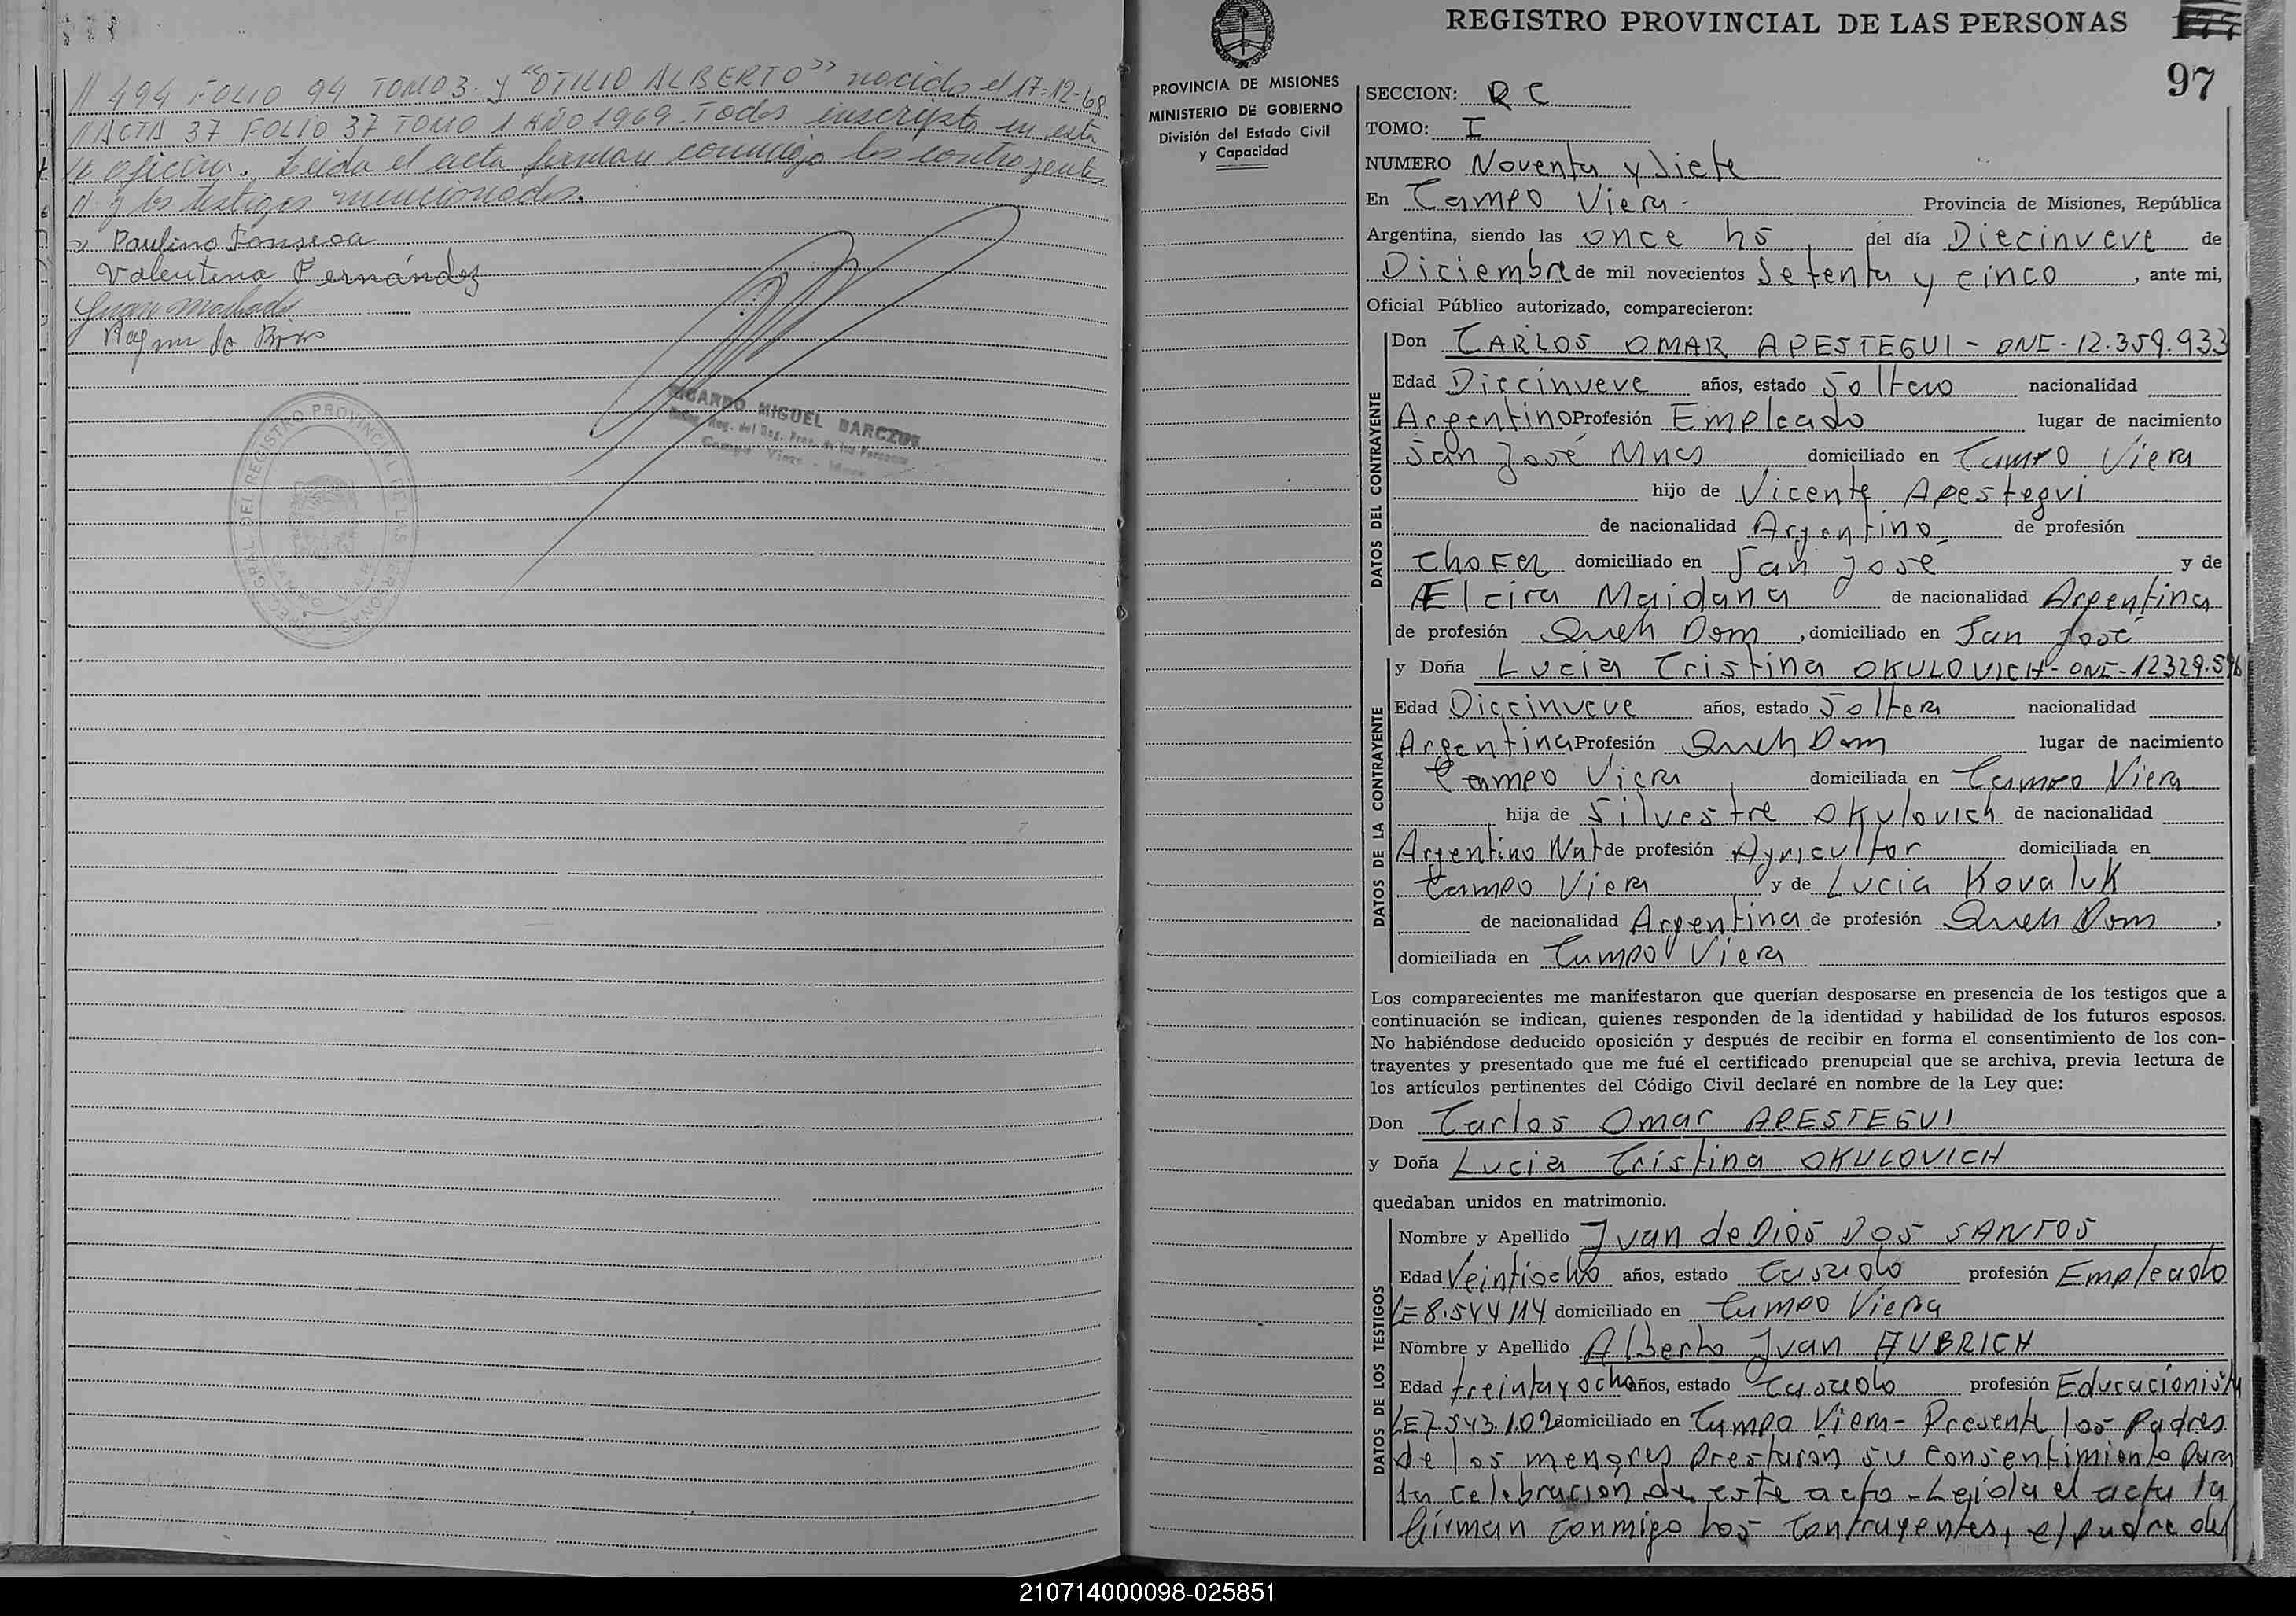 // 494 FOLIO 94 TOMO 3. y "OTILIO ALBERTO" nacido el 17-12-68
// ACTA 37 FOLIO 37 TOMO 1 AÑO 1969. Todos inscripto en esta
// oficina. Leida el acta firman conmigo los contrayentes
// y los testigos mencionados.
Paulino Fonseca
Valentina Fernández
Juan Machado
RICARDO MIGUEL BARCZUK
Reg. del Reg. Prov. de las Personas
Campo Viera - Mnes.
REGISTRO PROVINCIAL DE LAS PERSONAS
97
PROVINCIA DE MISIONES
MINISTERIO DE GOBIERNO
División del Estado Civil
y Capacidad
SECCION: R C
TOMO: I
NUMERO Noventa y Siete
En Campo Viera - Provincia de Misiones, República
Argentina, siendo las once hs del día Diecinueve de
Diciembre de mil novecientos Setenta y cinco, ante mi,
Oficial Público autorizado, comparecieron:
DATOS DEL CONTRAYENTE
Don CARLOS OMAR APESTEGUI - DNI - 12.359.933
Edad Diecinueve años, estado Soltero nacionalidad
Argentino Profesión Empleado lugar de nacimiento
San José Mnes domiciliado en Campo Viera
hijo de Vicente Apestegui
de nacionalidad Argentino de profesión
Chofer domiciliado en San José y de
Elcira Maidana de nacionalidad Argentina
de profesión Queh Dom, domiciliado en San José
DATOS DE LA CONTRAYENTE
y Doña Lucia Cristina OKULOVICH - DNI - 12329.596
Edad Diecinueve años, estado Soltera nacionalidad
Argentina Profesión Queh Dom lugar de nacimiento
Campo Viera domiciliada en Campo Viera
hija de Silvestre Okulovich de nacionalidad
Argentino Nat de profesión Agricultor domiciliada en
Campo Viera y de Lucia Kovaluk
de nacionalidad Argentina de profesión Queh Dom,
domiciliada en Campo Viera
Los comparecientes me manifestaron que querían desposarse en presencia de los testigos que a
continuación se indican, quienes responden de la identidad y habilidad de los futuros esposos.
No habiéndose deducido oposición y después de recibir en forma el consentimiento de los con-
trayentes y presentado que me fué el certificado prenupcial que se archiva, previa lectura de
los artículos pertinentes del Código Civil declaré en nombre de la Ley que:
Don Carlos Omar APESTEGUI
y Doña Lucia Cristina OKULOVICH
quedaban unidos en matrimonio.
DATOS DE LOS TESTIGOS
Nombre y Apellido Juan de Dios DOS SANTOS
Edad Veintiocho años, estado Casado profesión Empleado
LE 8.544114 domiciliado en Campo Viera
Nombre y Apellido Alberto Juan AUBRICH
Edad treinta y ocho años, estado Casado profesión Educacionista
LE 7.543.102 domiciliado en Campo Viera - Presente los Padres
de los menores prestaron su consentimiento para
la celebración de este acto - Leida el acta la
firman conmigo los Contrayentes, el padre del
210714000098-025851